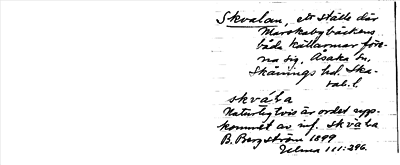 Skvalan, ett ställe där
Marskabybäckens
båda källarmar före-
na sig, Åsaka sn,
Skånings hd. Ska-
rab. l.
skvála
Naturligtvis är ordet upp-
kommet av inf. skvála
B. Bergström 1899
Ulma 111:396.